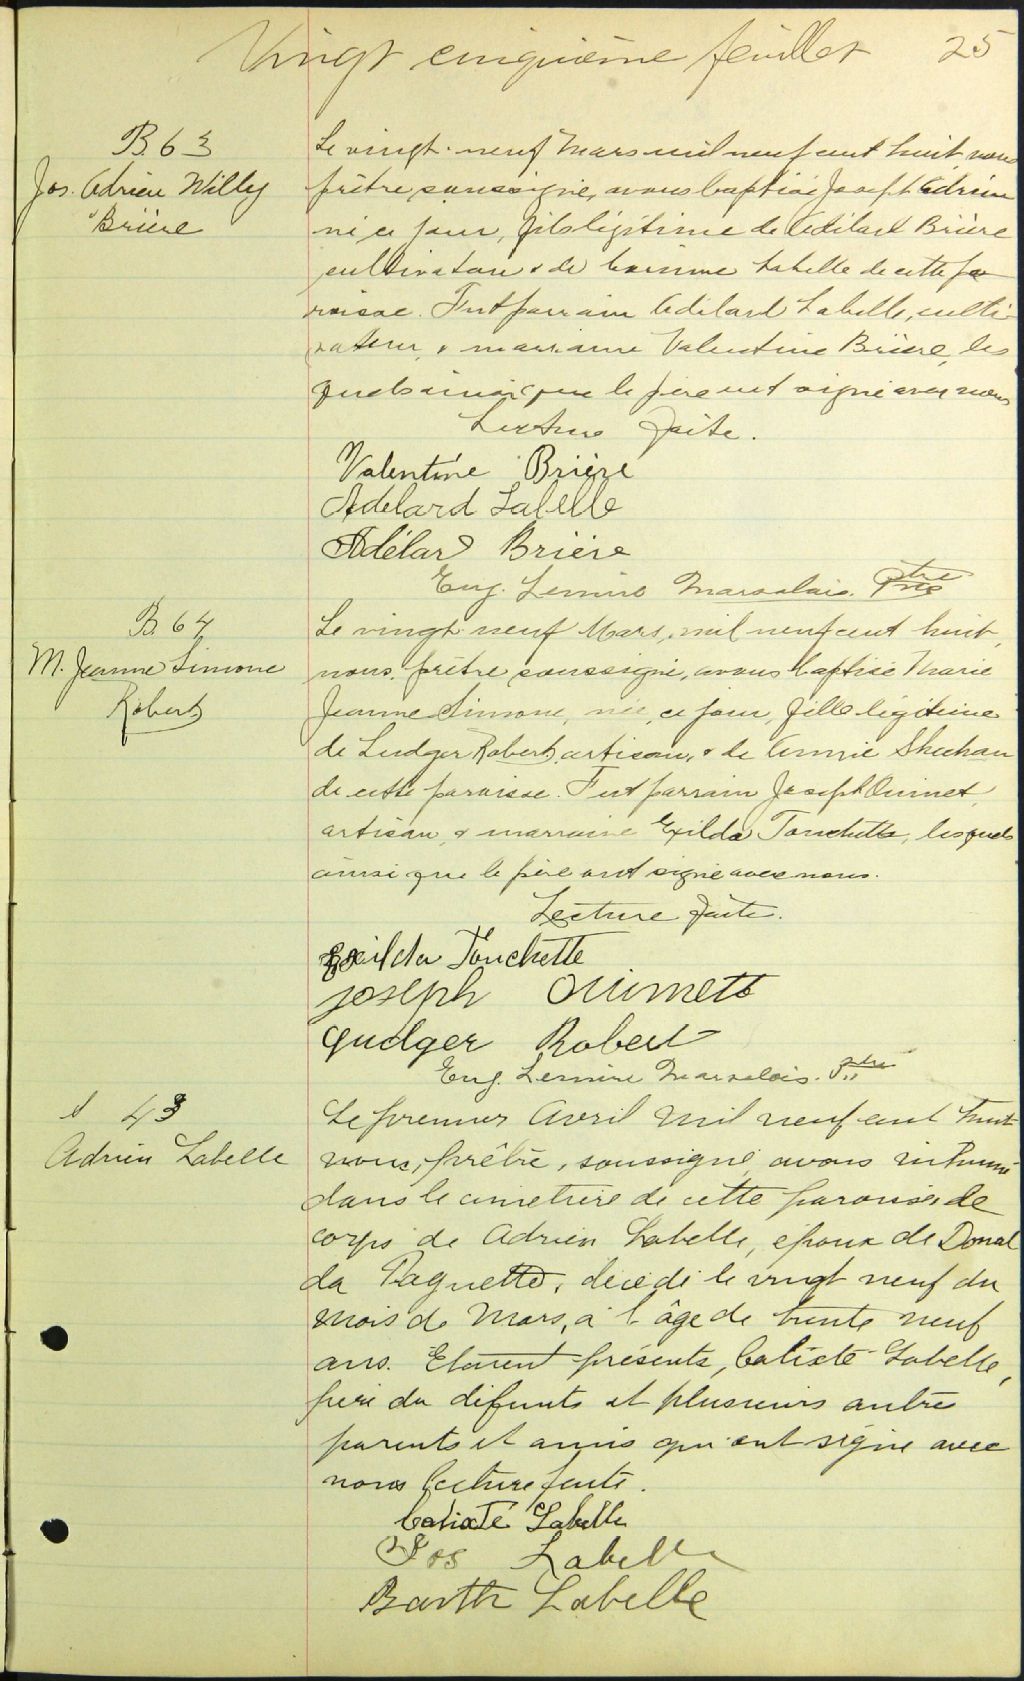 Vingt cinquième feuillet 25
B. 63
Jos. Adrien Willy
Brière
Le vingt-neuf Mars mil neuf cent huit nous
prêtre soussigné, avons baptisé Joseph Adrien
né ce jour, fils légitime de Adélard Brière
cultivateur & de Labelle de cette pa
roisse. Fut parrain Adélard Labelle, culti-
vateur, & marraine Valentine Brière, les
quels ainsi que le père ont signé avec nous
Lecture faite.
Valentine Brière
Adelard Labelle
Adélard Brière
Eug. Lemire Marsolais. Ptre
B. 64
M. Jeanne Simone
Robert
Le vingt-neuf Mars, mil neuf cent huit,
nous, prêtre soussigné, avons baptisé Marie
Jeanne Simone, née, ce jour, fille légitime
de Ludger Robert, artisan, & de Annie Sheehan
de cette paroisse. Fut parrain Joseph Ouimet,
artisan, & marraine Exilda Touchette, lesquels
ainsi que le père ont signé avec nous.
Lecture faite.
Exilda Touchette
Joseph Ouimett
Ludger Robert
Eug. Lemire Marsolais. Ptre
S 43
Adrien Labelle
Le premier Avril mil neuf cent huit
nous, prêtre, soussigné avons inhumé
dans le cimetière de cette paroisse le
corps de Adrien Labelle, époux de Donal
da Paquette, décédé le vingt neuf du
mois de Mars, à l'âge de trente neuf
ans. Etaient présents, Calixte Labelle,
père du défunts et plusieurs autres
parents et amis qui ont signé avec
nous lecture faite.
Calixté Labelle
Jos Labelle
Barth Labelle